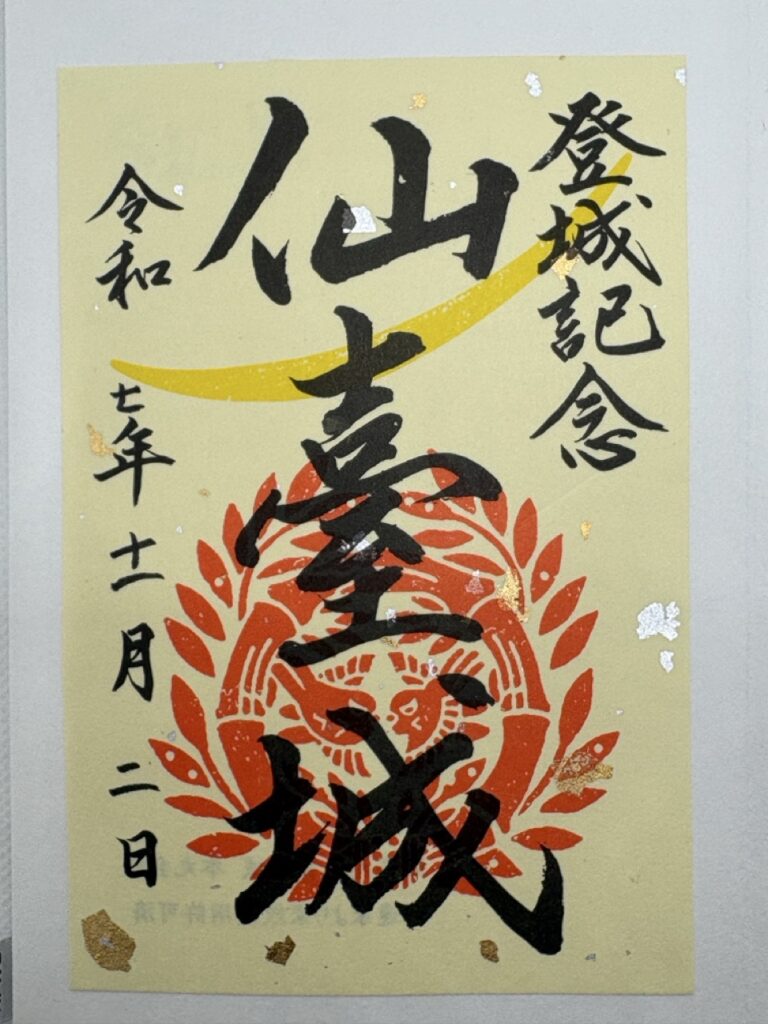 登城記念
仙臺城
令和七年十一月二日